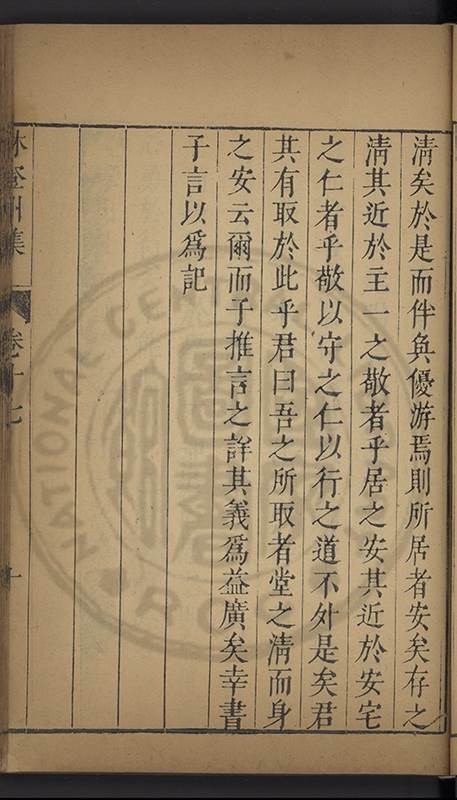 清矣於是而伴奐優游焉則所居者安矣存之
清其近於主一之敬者乎居之安其近於安宅
之仁者乎敬以守之仁以行之道不外是矣君
其有取於此乎君曰吾之所取者堂之清而身
之安云爾而子推言之詳其義爲益廣矣幸書
子言以爲記
林登州集
卷十七